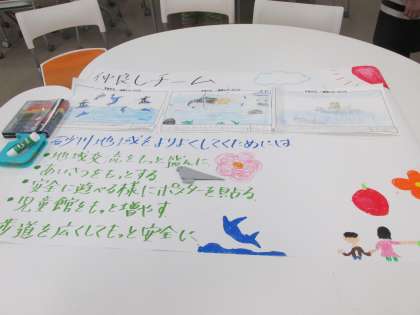 仲良しチーム
川地域をよりよくしてくためには
・地域交流をもっと盛んに
・あいさつをもっとする
・安全に遊べる様にポスターを貼る
・児童館をもっと増やす
歩道を広くしてもっと安全に